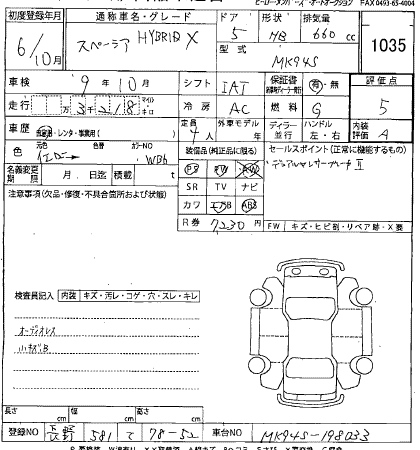 FAX 0493-65-4004
初度登録年月 通称車名・グレード ドア 形状 排気量
6/10月 スペーシア HYBRID X 5 HB 660 cc 1035
型式
MK94S
車検 9年10月 シフト IAT 保証書 有・無 評価点
走行 万3千218 マイル キロ 冷房 AC 燃料 G 5
車歴 自家用・レンタ・事業用( ) 定員 4人 外車モデル ディーラー 並行 ハンドル 左・右 内装評価 A
色 元色 色番 カラーNO WB6
装備品(純正品に限る) セールスポイント(正常に機能するもの)
名義変更期限 月 日迄 積載 t PS PW AW デュアルセンサーブレーキII
注意事項(欠品・修復・不具合箇所および状態) SR TV ナビ
カワ エアB ABS
R券 7230円 FW キズ・ヒビ割・リペア跡・X要
検査員記入 内装 キズ・汚レ・コゲ・穴・スレ・キレ
オーディオレス
小キズ.B
長さ cm 幅 cm 高さ cm
登録NO 長野 581 て 78-52 車台NO MK94S-198033